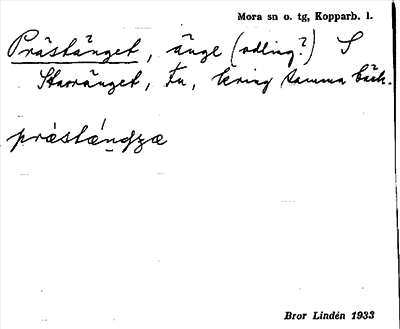 Mora sn o. tg, Kopparb. l.
Prästänget, änge (odling?) S
Storänget, Fu, kring samma bäck.
præstændzæ
Bror Lindén 1933